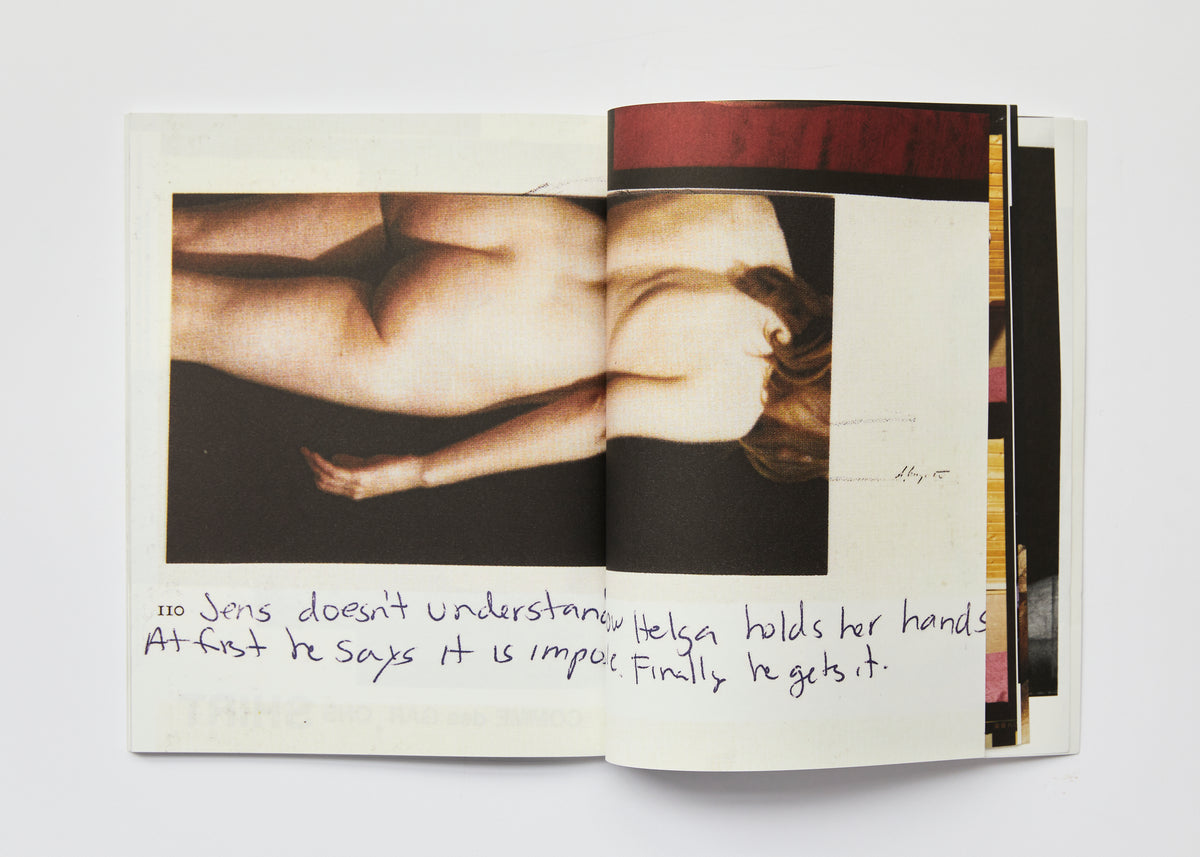 110 Jens doesn't understand Helga holds her hands
At first he says it is impo e. Finally he gets it.
COMME des GAR ONS SHIRT